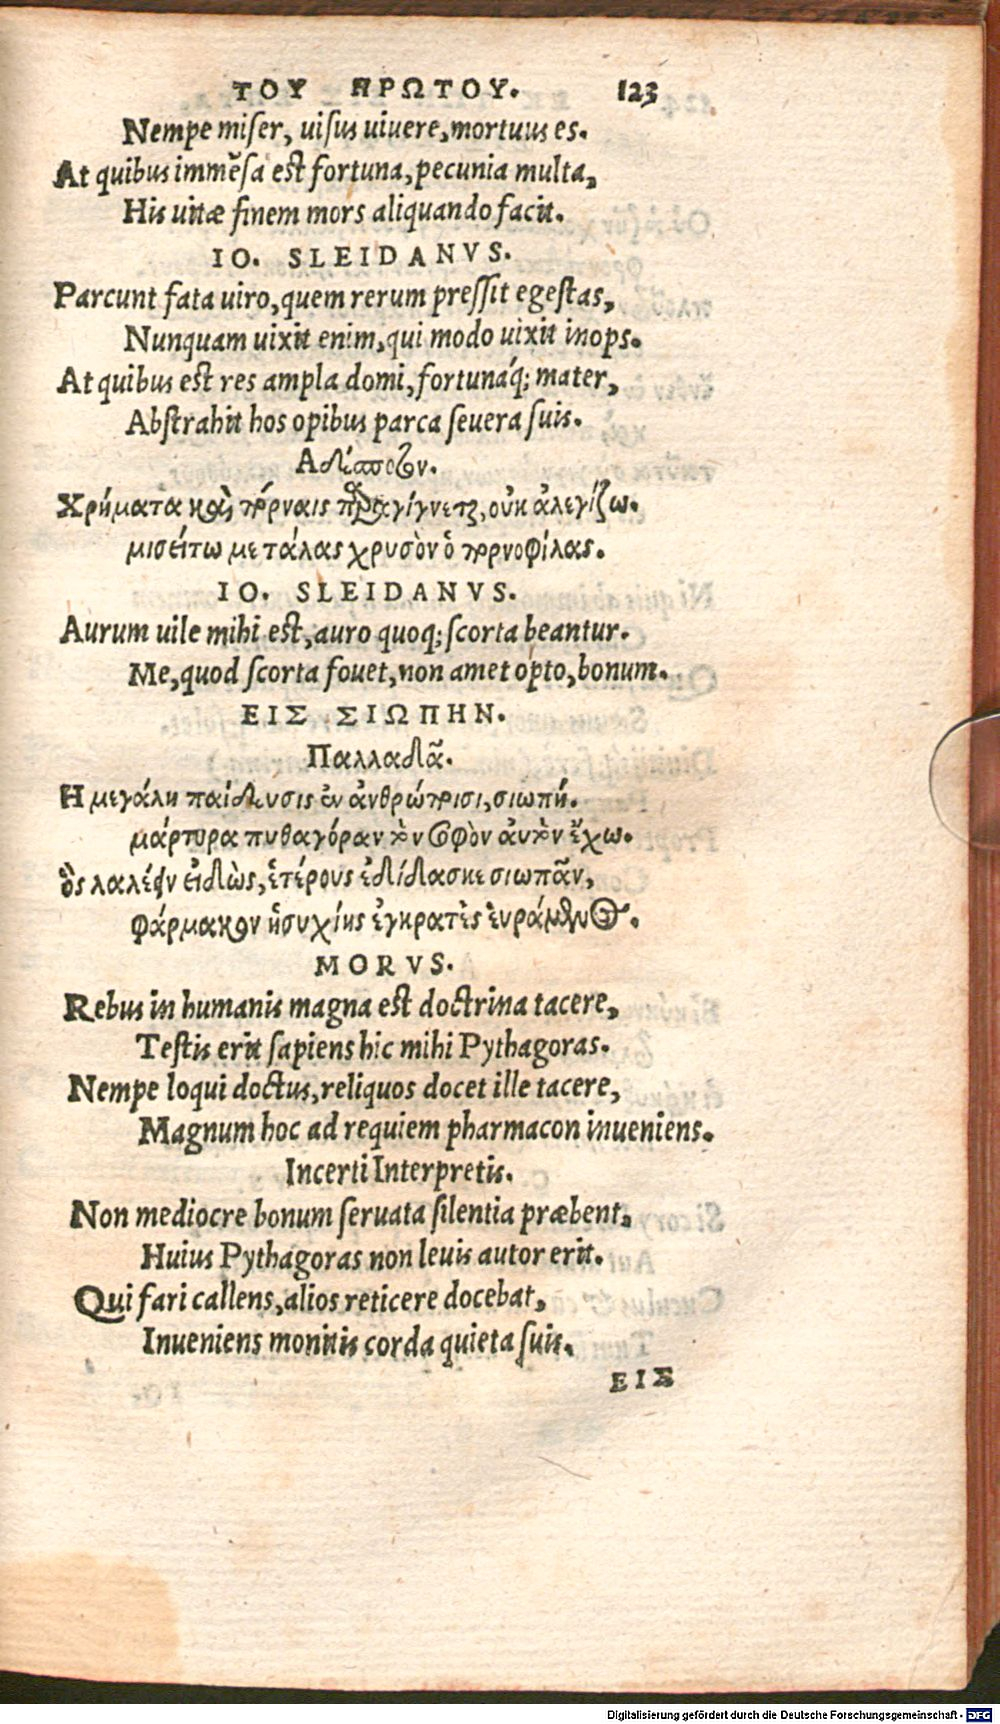 ΤΟΥ ΠΡΩΤΟΥ. 123
Nempe miſer, uiſus uiuere, mortuus es.
At quibus immẽſa est fortuna, pecunia multa,
His uitæ finem mors aliquando facit.
IO. SLEIDANVS.
Parcunt fata uiro, quem rerum preſſit egeſtas,
Nunquam uixit enim, qui modo uixit inops.
At quibus est res ampla domi, fortunáq; mater,
Abſtrahit hos opibus parca ſeuera ſuis.
Αδέσποτον.
Χρήματα καὶ πόρναις παραγίγνεται, οὐκ ἀλεγίζω.
μισείτω με τάλας χρυσὸν ὁ πορνοφίλας.
IO. SLEIDANVS.
Aurum uile mihi est, auro quoq; ſcorta beantur.
Me, quod ſcorta fouet, non amet opto, bonum.
ΕΙΣ ΣΙΩΠΗΝ.
Παλλαδᾶ.
Η μεγάλη παίδευσις ἐν ἀνθρώποισι, σιωπή.
μάρτυρα πυθαγόραν τὸν σοφὸν ἀυτὸν ἔχω.
ὃς λαλέειν εἰδὼς, ἑτέρους ἐδίδασκε σιωπᾶν,
φάρμακον ἡσυχίης ἐγκρατὲς ἑυράμενος.
MORVS.
Rebus in humanis magna est doctrina tacere,
Teſtis erit ſapiens hic mihi Pythagoras.
Nempe loqui doctus, reliquos docet ille tacere,
Magnum hoc ad requiem pharmacon inueniens.
Incerti Interpretis.
Non mediocre bonum ſeruata ſilentia præbent,
Huius Pythagoras non leuis autor erit.
Qui fari callens, alios reticere docebat,
Inueniens monitis corda quieta ſuis.
ΕΙΣ
Digitalisierung gefördert durch die Deutsche Forschungsgemeinschaft - DFG